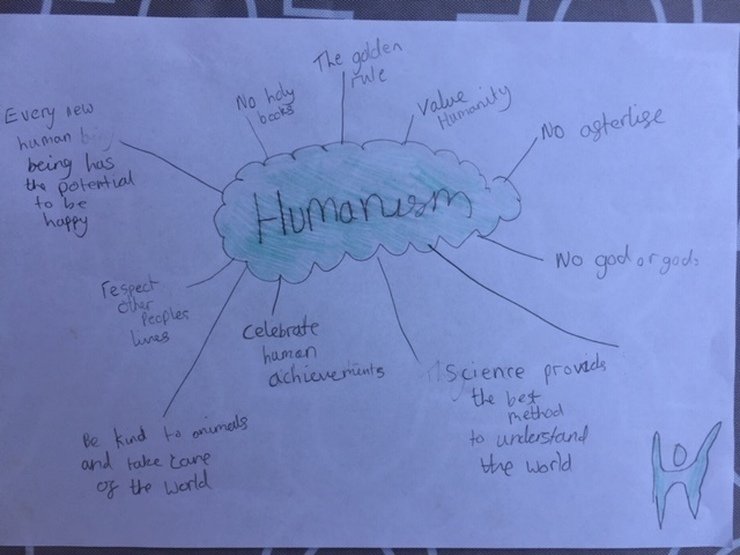 The golden
rule
No holy
books
Value
Humanity
Every new
human
being has
the potential
to be
happy
No afterlise
Humanism
No god or gods
respect
other
peoples
lives
Celebrate
human
achievements
Science provids
the best
method
to understand
the world
Be kind to animals
and take care
of the world